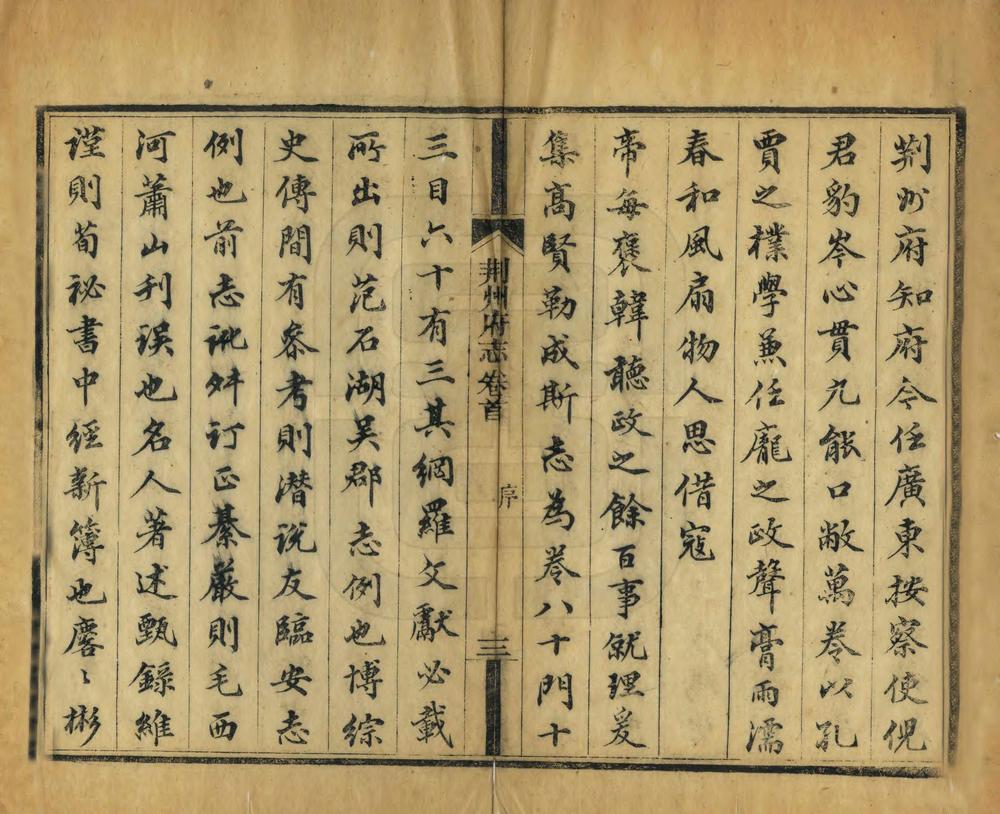 荆州府知府今任廣東按察使倪
君豹岑心貫九能口敝萬卷以孔
賈之樸學兼任龐之政聲膏雨濡
春和風扇物人思借寇
帝每褒韓聽政之餘百事就理爰
集高賢勒成斯志為卷八十門十
荆州府志卷首
序
三
三目六十有三其綱羅文獻必載
所出則范石湖吴郡志例也博綜
史傳間有叅考則潜说友臨安志
例也前志訛舛訂正綦嚴則毛西
河蕭山刋误也名人著述甄錄維
謹則荀祕書中經新簿也麐〻彬